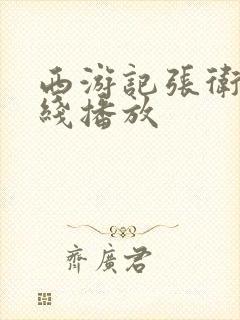 西游記張衛
綫播放
齊廣君